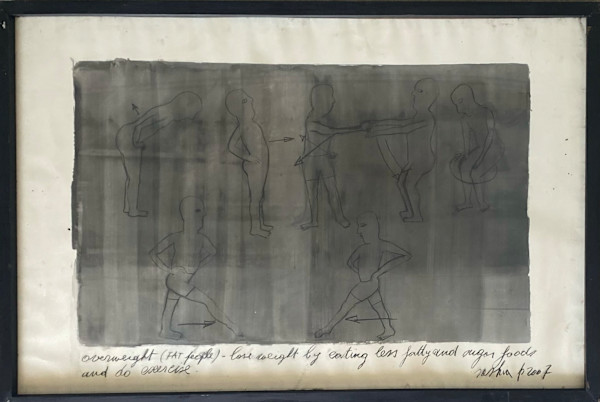 overweight (FAT people) - lose weight by eating less fatty and sugar foods
and do exercise.